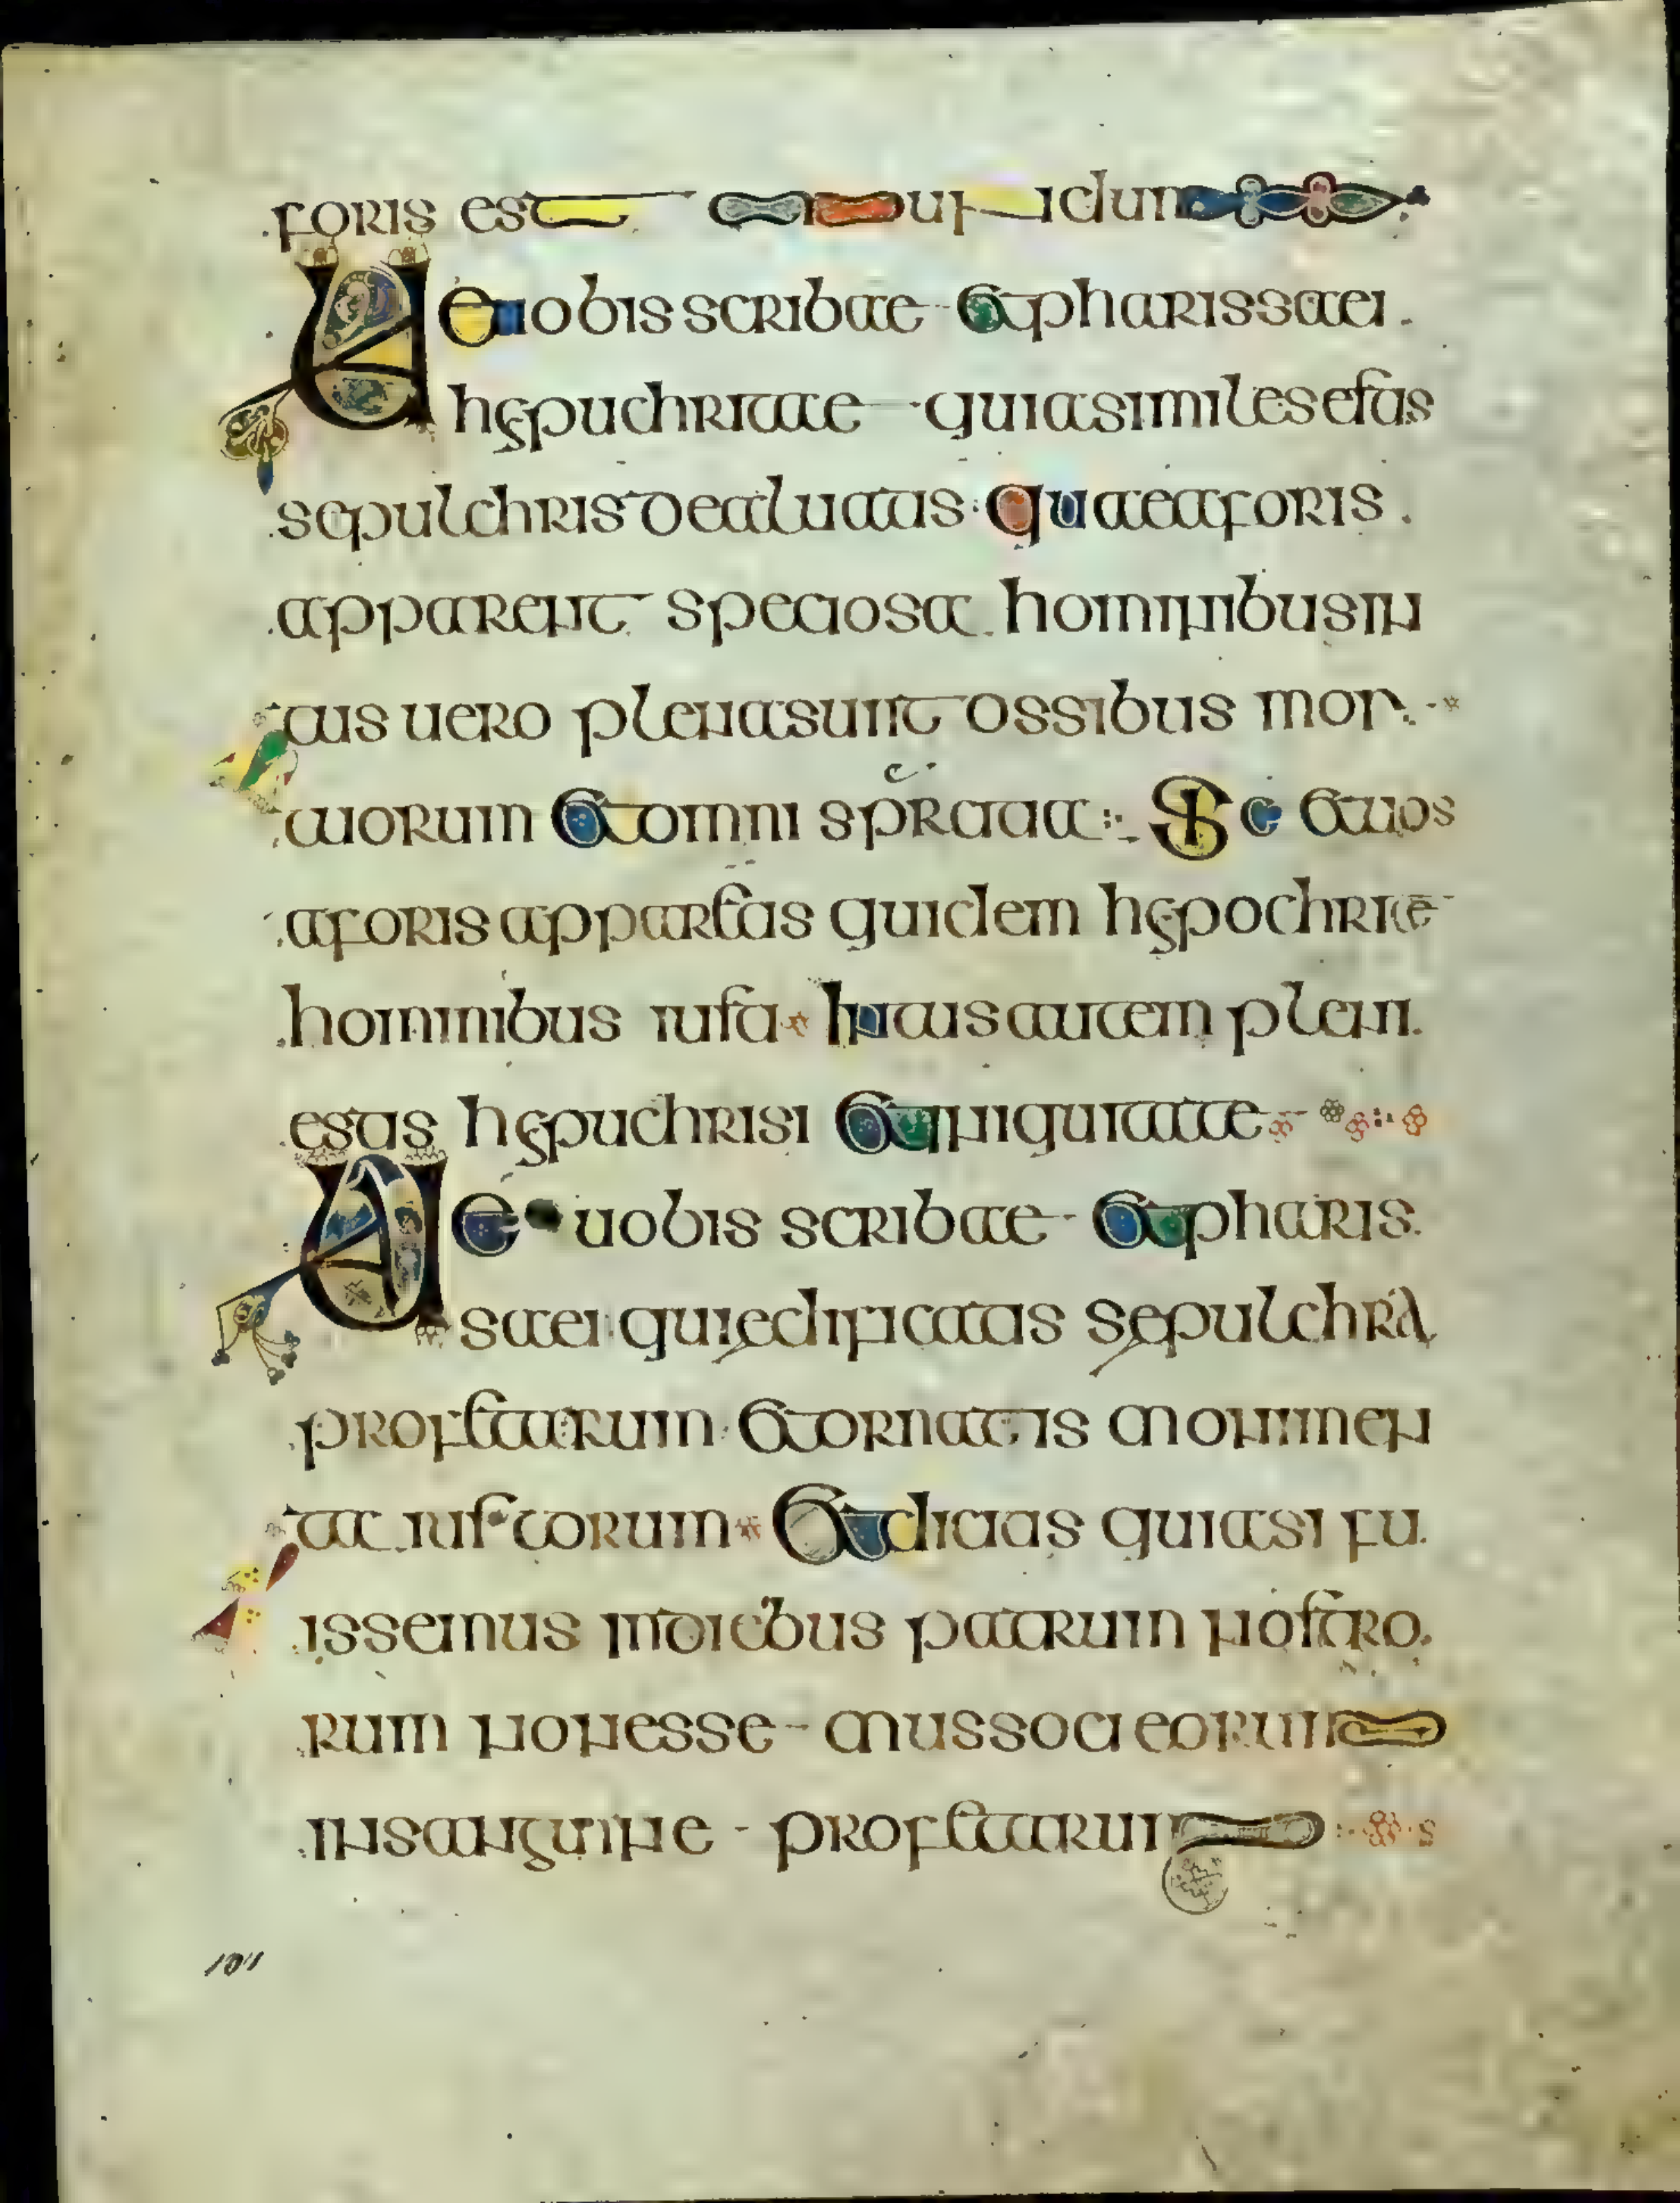 foris est mundum
Uae uobis scribae et pharissaei
hypuchritae quia similes estis
sepulchris dealuatis quae a foris
apparent speciosa hominibus in
tus uero plena sunt ossibus mor
tuorum et omni spurcitia Sic et uos
a foris apparetis quidem hypochrite
hominibus iusti intus autem pleni
estis hypuchrisi et iniquitate
Uae uobis scribae et pharis
saei qui edificatis sepulchra
profetarum et ornatis monumen
ta iustorum Et dicitis quia si fu
issemus in diebus patrum nostro
rum non esse mus soci eorum
in sanguine profetarum